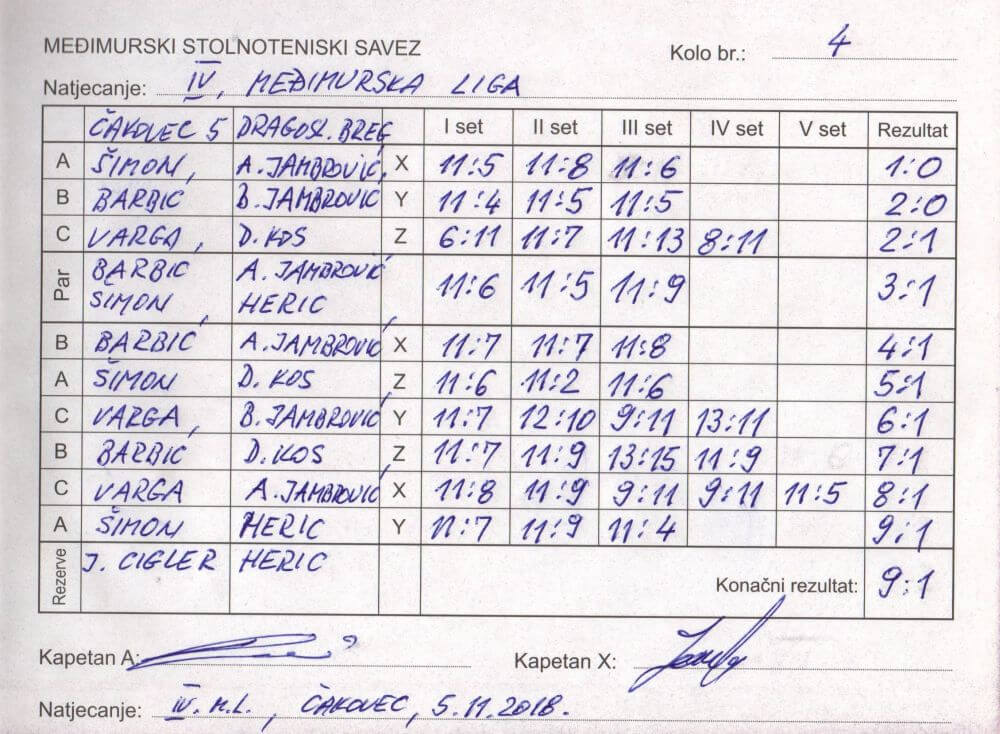 MEĐIMURSKI STOLNOTENISKI SAVEZ Kolo br.: 4
Natjecanje: IV, MEĐIMURSKA LIGA
ČAKOVEC 5 DRAGOSL. BREG I set II set III set IV set V set Rezultat
A ŠIMON, A. JAMBROVIĆ, X 11:5 11:8 11:6 1:0
B BARBIĆ B. JAMBROVIĆ Y 11:4 11:5 11:5 2:0
C VARGA, D. KOS Z 6:11 11:7 11:13 8:11 2:1
Par BARBIĆ A. JAMBROVIĆ 11:6 11:5 11:9 3:1
ŠIMON, HERIC,
B BARBIĆ A. JAMBROVIĆ X 11:7 11:7 11:8 4:1
A ŠIMON D. KOS Z 11:6 11:2 11:6 5:1
C VARGA, B. JAMBROVIĆ, Y 11:7 12:10 9:11 13:11 6:1
B BARBIĆ D. KOS, Z 11:7 11:9 13:15 11:9 7:1
C VARGA A. JAMBROVIĆ X 11:8 11:9 9:11 9:11 11:5 8:1
A ŠIMON HERIC Y 11:7 11:9 11:4 9:1
Rezerve J. CIGLER HERIC Konačni rezultat: 9:1
Kapetan A: Kapetan X:
Natjecanje: IV. M.L., ČAKOVEC, 5.11.2018.